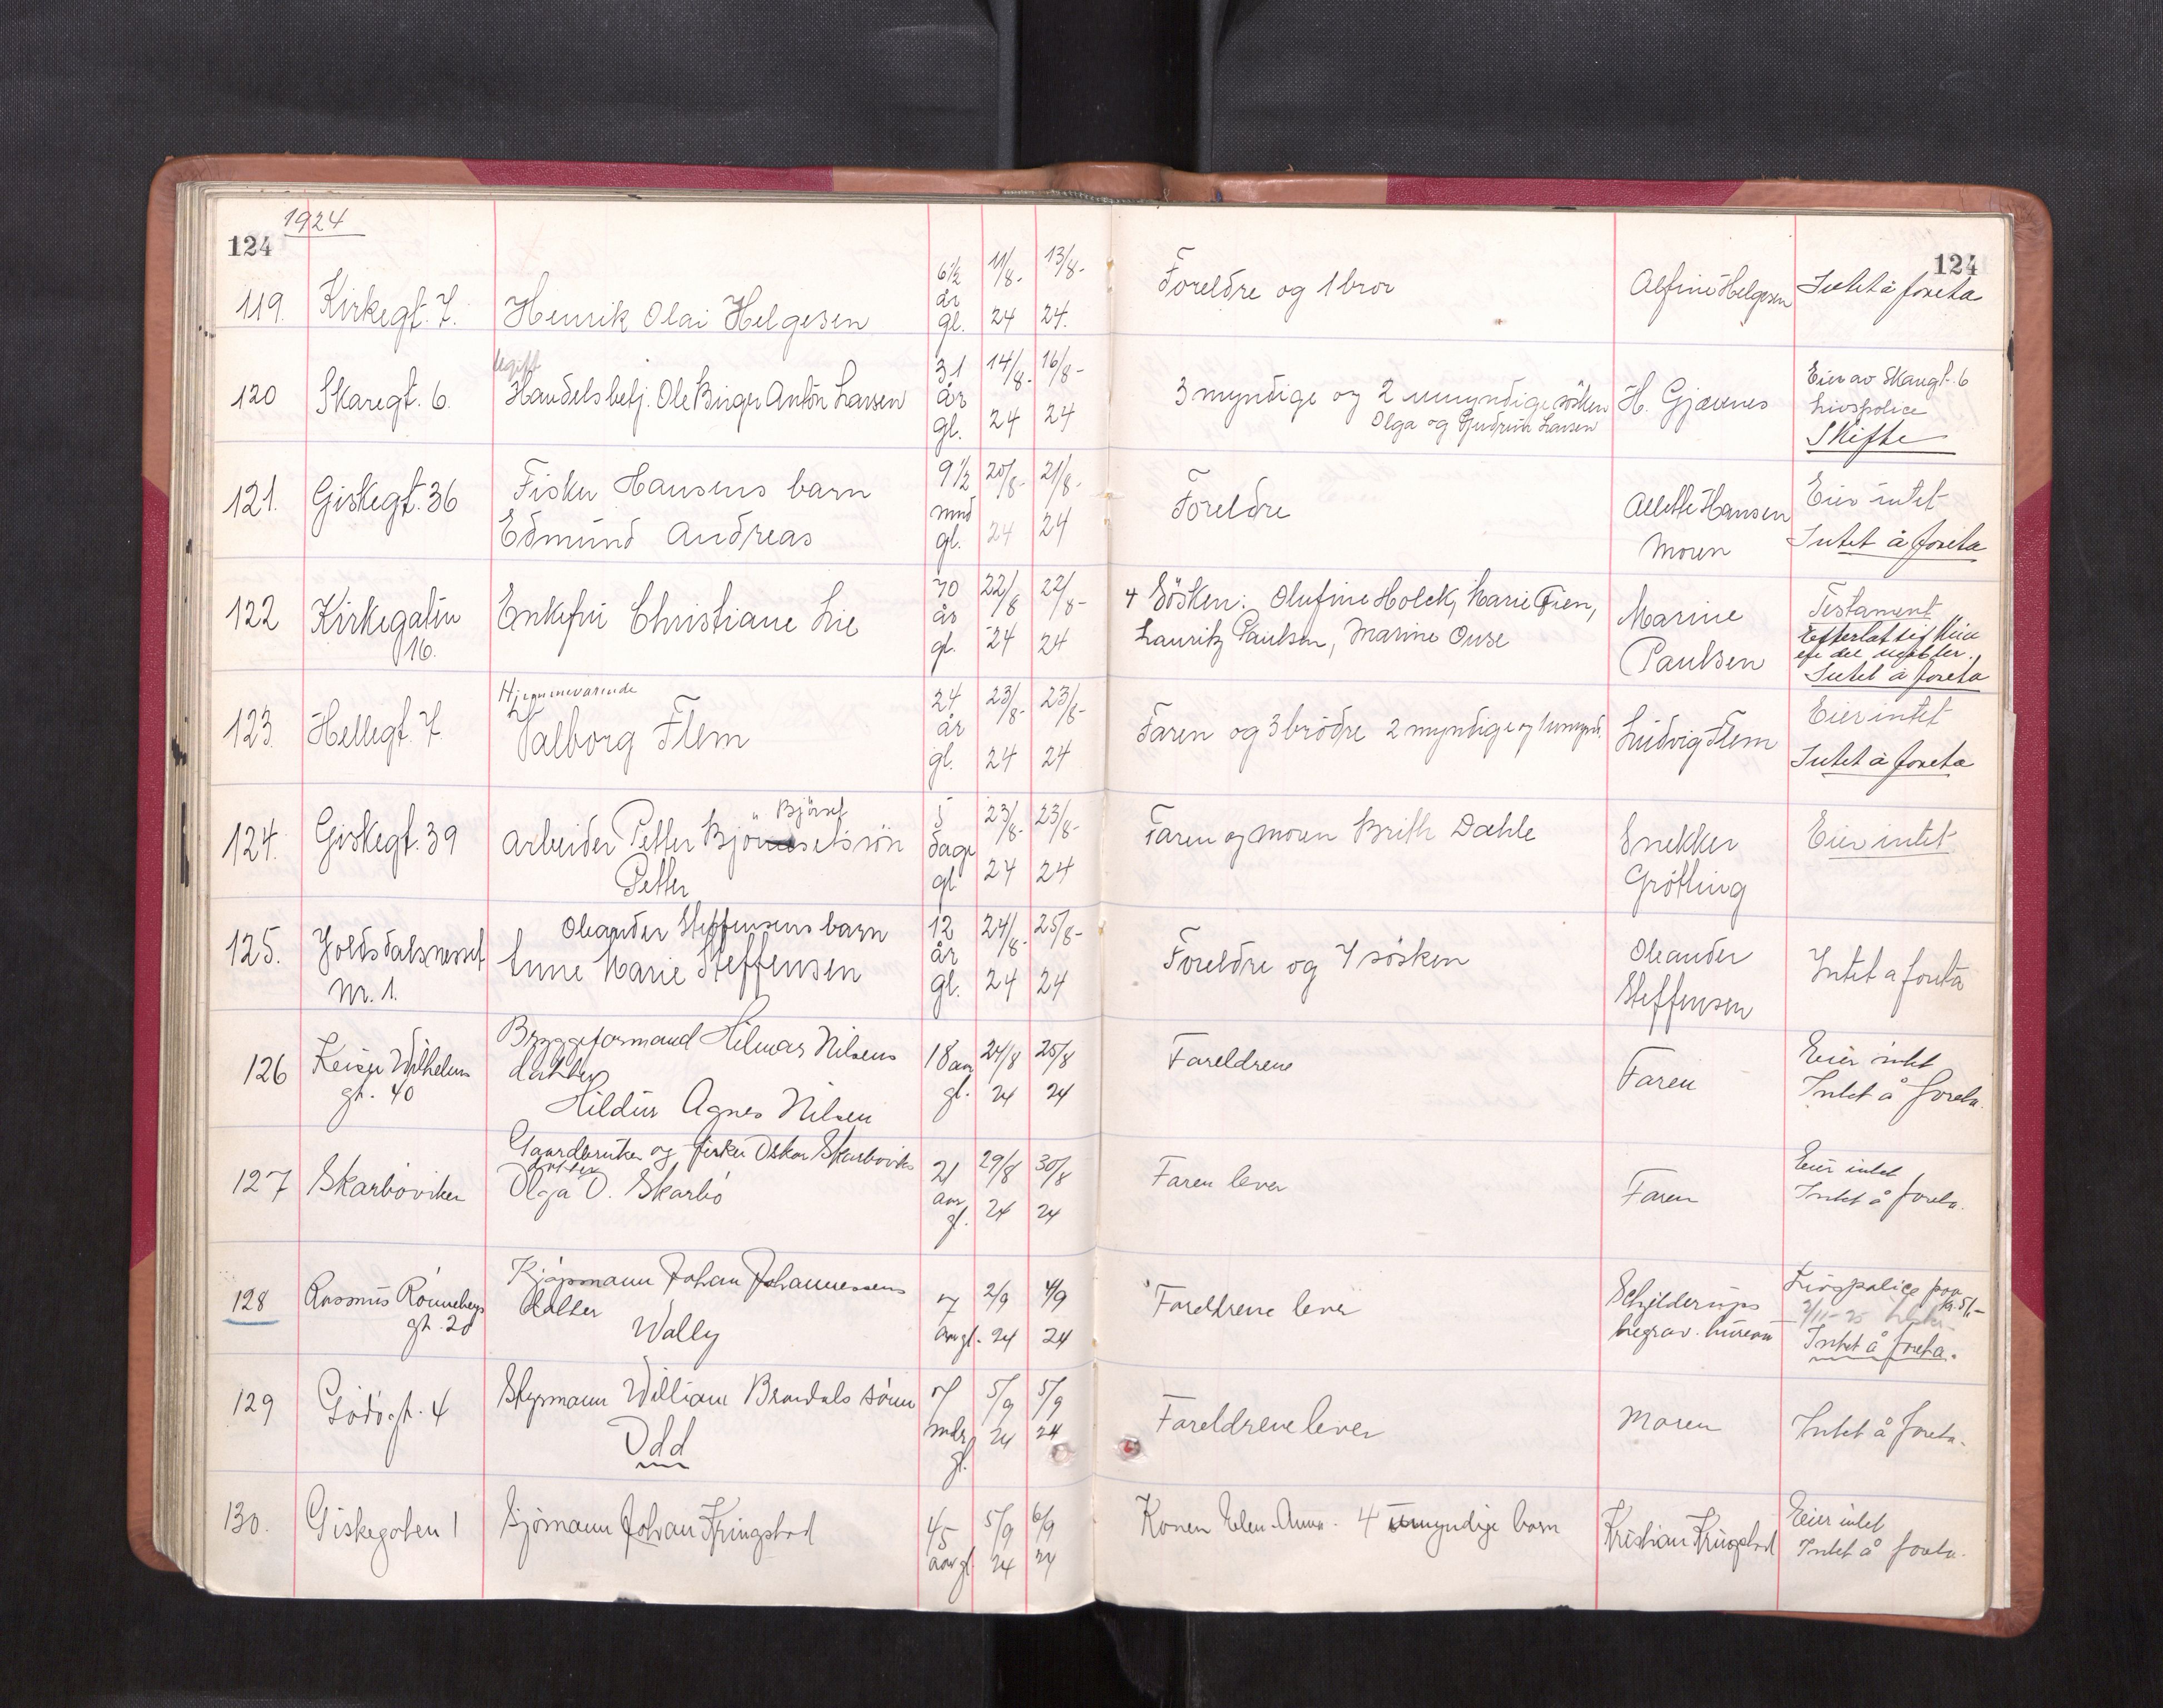 1924
124
124
119. Kirkegt. 7. Henrik Olai Helgesen 6½ år gl. 11/8- 24 13/8- 24. Foreldre og 1 bror Alfine Helgesen Intet å foreta
120 Skaregt. 6. Ugift Handelsbetj. Ole Birger Anton Larsen 31 år gl. 14/8- 24 16/8- 24 3 myndige og 2 umyndige sösken H. Gjævenes Eier av Skaregt. 6
Olga og Gudrun Larsen Livspolice
Skifte
121. Giskegt. 36 Fisker Hansens barn 9½ mnd gl. 20/8- 24 21/8- 24 Foreldre Allette Hansen Eier intet
Edmund Andreas Moren Intet å foreta
122 Kirkegaten 16. Enkefru Christiane Lie 70 år gl. 22/8 24 22/8- 24 4 Sösken: Olufine Holck, Marie Fien, Marine Testament
Lauritz Paulsen, Marine Ouse Paulsen Efterlot sig
Intet å foreta
123. Hellegt. 7. Hjemmeværende
Valborg Flem 24 år gl. 23/8- 24 23/8- 24 Faren og 3 brödre 2 myndige og 1 umynd. Ludvig Flem Eier intet
Intet å foreta
124. Giskegt. 39 Björset
Arbeider Petter Björnesets sön 5 dage gl 23/8- 24 23/8- 24 Faren og moren Brith Dahle Snekker Eier intet
Petter Grötting
125. Voldsdalsnesset Nr. 1. Oleander Steffensens barn 12 år gl. 24/8- 24 25/8- 24 Foreldre og 7 sösken Oleander Intet a foreta
Anne Marie Steffensen Steffensen
126 Keiser Wilhelms gt. 40 Bryggeformand Hilmar Nilsens 18 aar gl. 24/8 24 25/8 24 Foreldrene Faren Eier intet
datter Intet å foreta.
Hildur Agnes Nilsen
127 Skarbövikен Gaardbruker og fisker Oskar Skarbövik's 21 aar gl. 29/8 24 30/8 24 Faren lever Faren Eier intet
datter Intet å foreta.
Olga O. Skarbö
128 Rasmus Rönnebergs gt. 20 Kjöpmann Johan Johannessens 7 aar gl. 2/9 24 4/9 24 Foreldrene lever Schjelderups Livspolice paa
datter begrav. bureau kr. 51,-
Wally 2/11-25
Intet å foreta.
129 Gödögt. 4 Styrmann William Brandals sönn 7 mdr gl. 5/9 24 5/9 24 Foreldrene lever Moren Intet å foreta.
Odd
130. Giskegaten 1 Sjömann Johan Kringstad 45 aar gl 5/9 24 6/9 24 Konen Elen Anna. 4 umyndige barn Kristian Kringstad Eier intet
Intet å foreta.